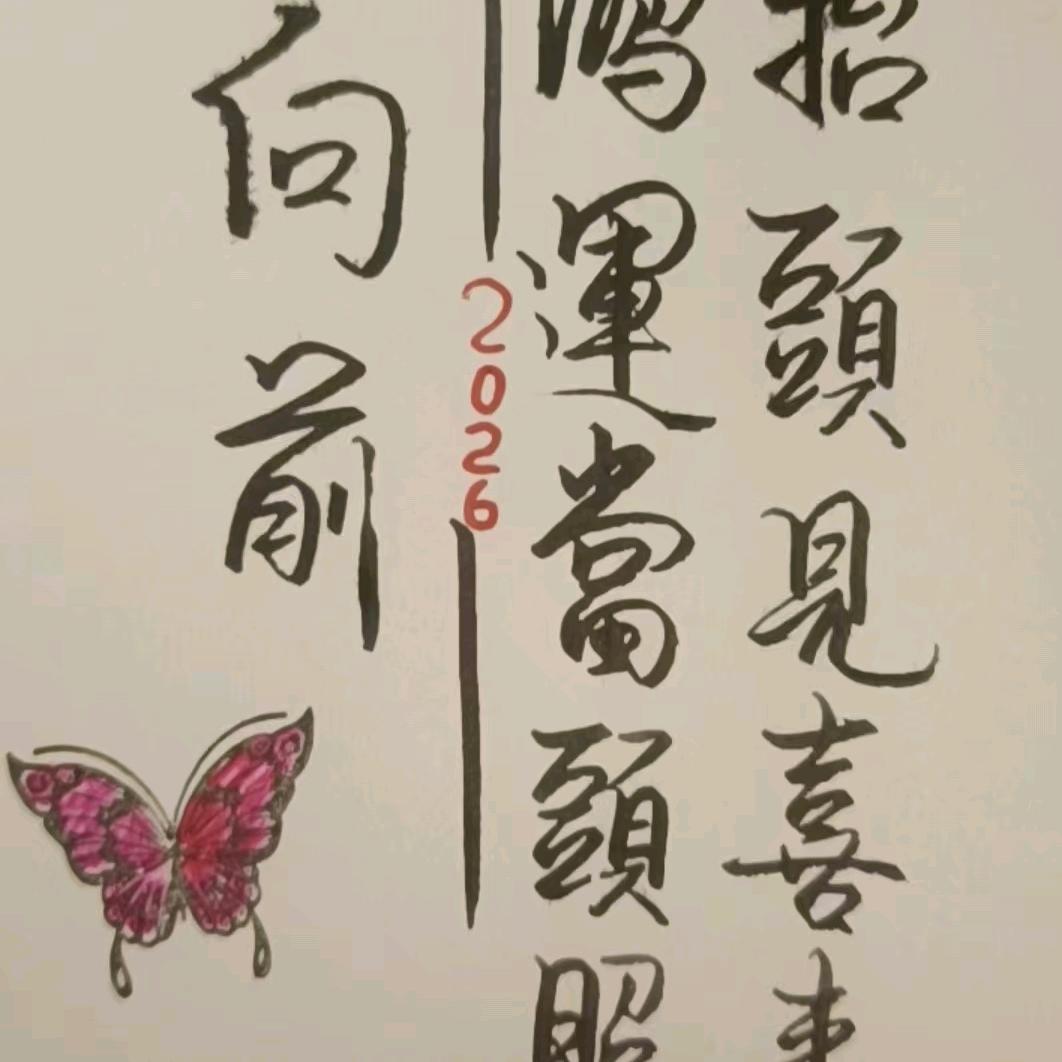 招頭見喜来
鴻運當頭照
2026
向前